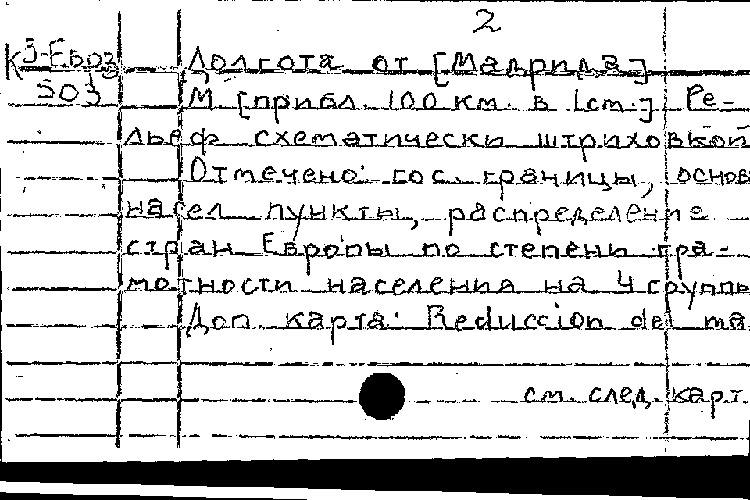 2
К 3-Евроз Долгота от [Мадрида]
303 М [прибл. 100 км. в 1 см.] Ре-
льеф схематически штриховкой
Отмечено: гос. границы, основ
насел пункты, распределение
стран Европы по степени гра-
мотности населения на 4 группы
Доп. карта: Reduccion del ma
см. след. карт.